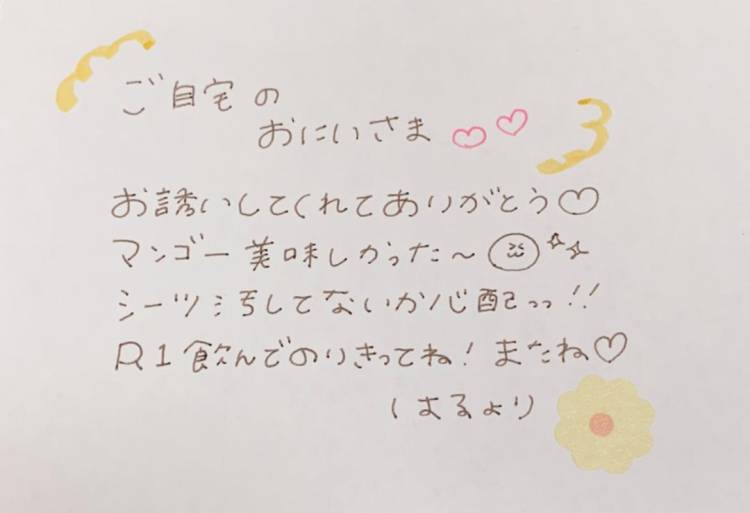 ご自宅の
おにいさま♡♡
お誘いしてくれてありがとう♡
マンゴー美味しかった〜
シーツ汚してないか心配っっ!!
R1飲んでのりきってね!またね♡
はるより